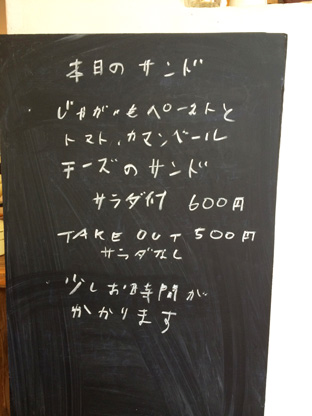 本日のサンド
じゃがいもペーストと
トマト、カマンベール
チーズのサンド
サラダ付 600円
TAKE OUT 500円
サラダなし
・少しお時間が
かかります